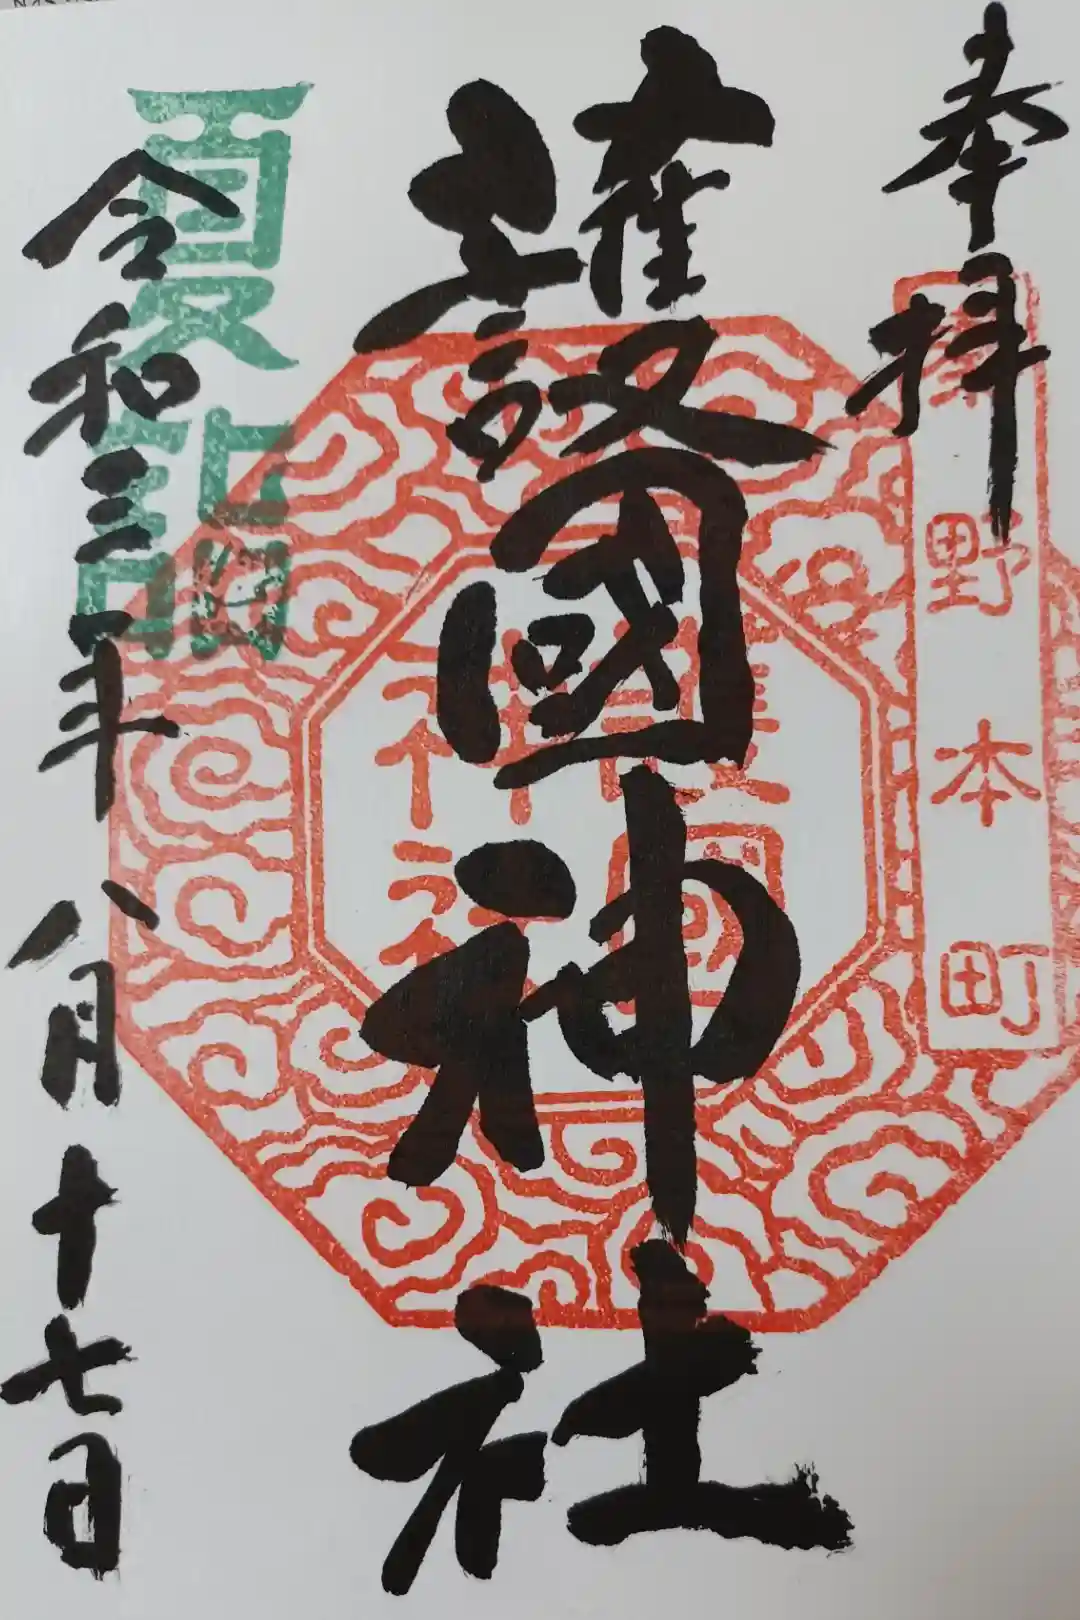 奉拝
野本町
護國神社
護國
神社
夏詣
令和三年八月十七日